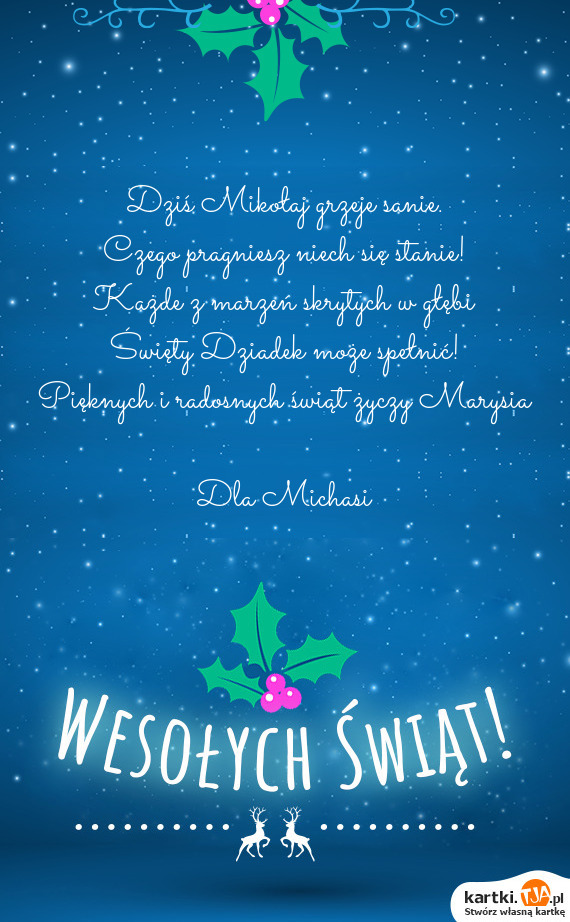 Dziś, Mikołaj grzeje sanie.
Czego pragniesz niech się stanie!
Każde z marzeń skrytych w głębi
Święty Dziadek może spełnić!
Pięknych i radosnych świąt życzy Marysia
Dla Michasi
Wesołych Świąt!
kartki.TJA.pl
Stwórz własną kartkę